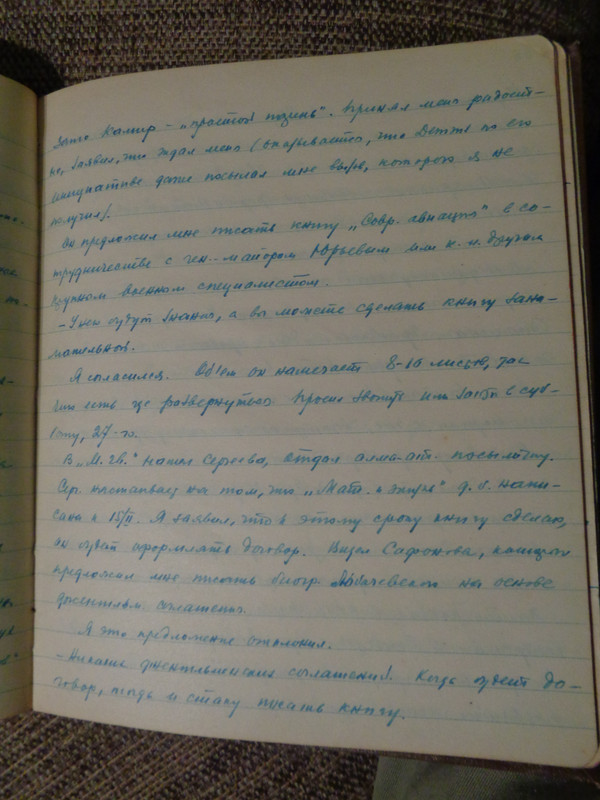 Зато Камир – „простой парень". Принял меня радост-
но, заявил, что ждал меня (оказывается, что Детгиз по его
инициативе даже посылал мне вызов, которого я не
получил).
Он предложил мне писать книгу „Совр. авиация" в со-
трудничестве с ген.-майором Юрьевым или к.-н. другим
крупным военным специалистом.
– У них будут знания, а вы можете сделать книгу зани-
мательной.
Я согласился. Объем он намечает 8-10 листов, так
что есть где развернуться. Просил звонить или зайти в суб-
боту, 27-го.
В „М. Гв." нашел Сергеева, отдал алма-ат. посылочку.
Сер. настаивает на том, что „Мат. в жизни" д. б. напи-
сана к 15/II. Я заявил, что к этому сроку книгу сделаю,
он будет оформлять договор. Видел Сафонова, который
предложил мне писать биогр. Лобачевского на основе
джентльм. соглашения.
Я это предложение отклонил.
– Никаких джентльменских соглашений. Когда будет до-
говор, тогда и стану писать книгу.